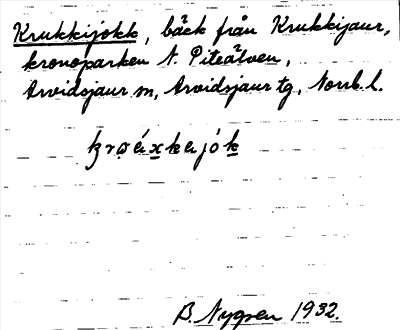 Krukkijokk, bäck från Krukkijaur,
kronoparken N. Piteälven,
Arvidsjaur sn, Arvidsjaur tg, Norrb. l.
B. Nygren 1932.